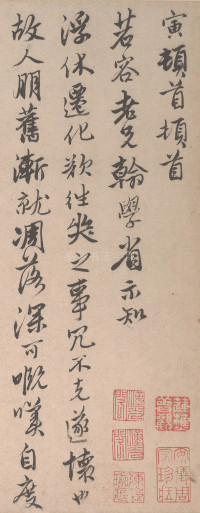 寅頓首頓首
若容老兄翰學省示知
浮休遷化欲往哭之事冗不克遂懷也
故人朋舊漸就凋落深可嘅嘆自度